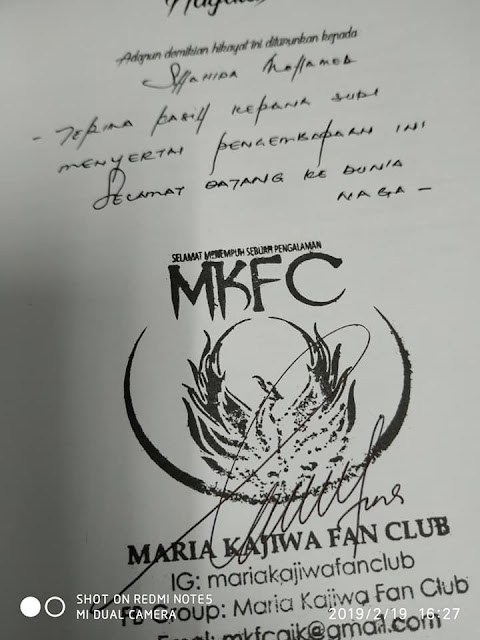 Adapun demikian hikayat ini diturunkan kepada
SHAHIDA MOHAMED
- TERIMA KASIH KERANA SUDI
MENYERTAI PENGEMBARAAN INI
SELAMAT DATANG KE DUNIA
NAGA -
SELAMAT MENEMPUH SEBUAH PENGALAMAN
MKFC
MARIA KAJIWA FAN CLUB
IG: mariakajiwafanclub
FB Group: Maria Kajiwa Fan Club
Email: mkfcgjk@gmail.com
SHOT ON REDMI NOTE5
MI DUAL CAMERA
2019/2/19 16:27